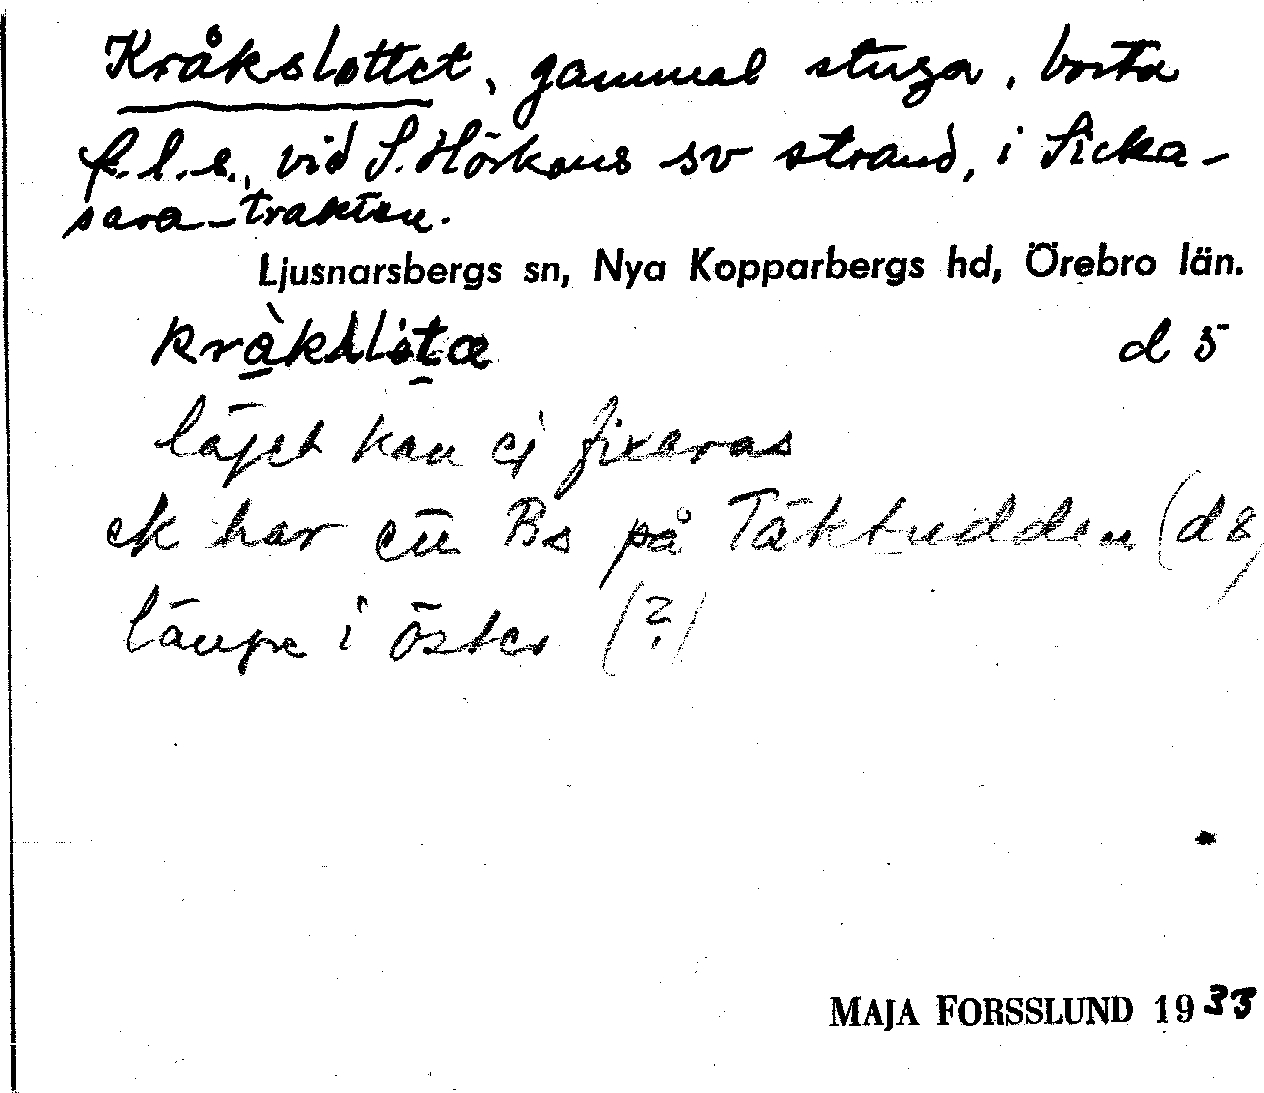 Kråkslottet, gammal stuga, borta
f.l.s., vid S. Hörkens sv strand, i Sicka-
sara-trakten.
Ljusnarsbergs sn, Nya Kopparbergs hd, Örebro län.
d 5
läget kan ej fixeras
ek har en Bs på Täktudden (d8)
längre i öster (?)
MAJA FORSSLUND 1935